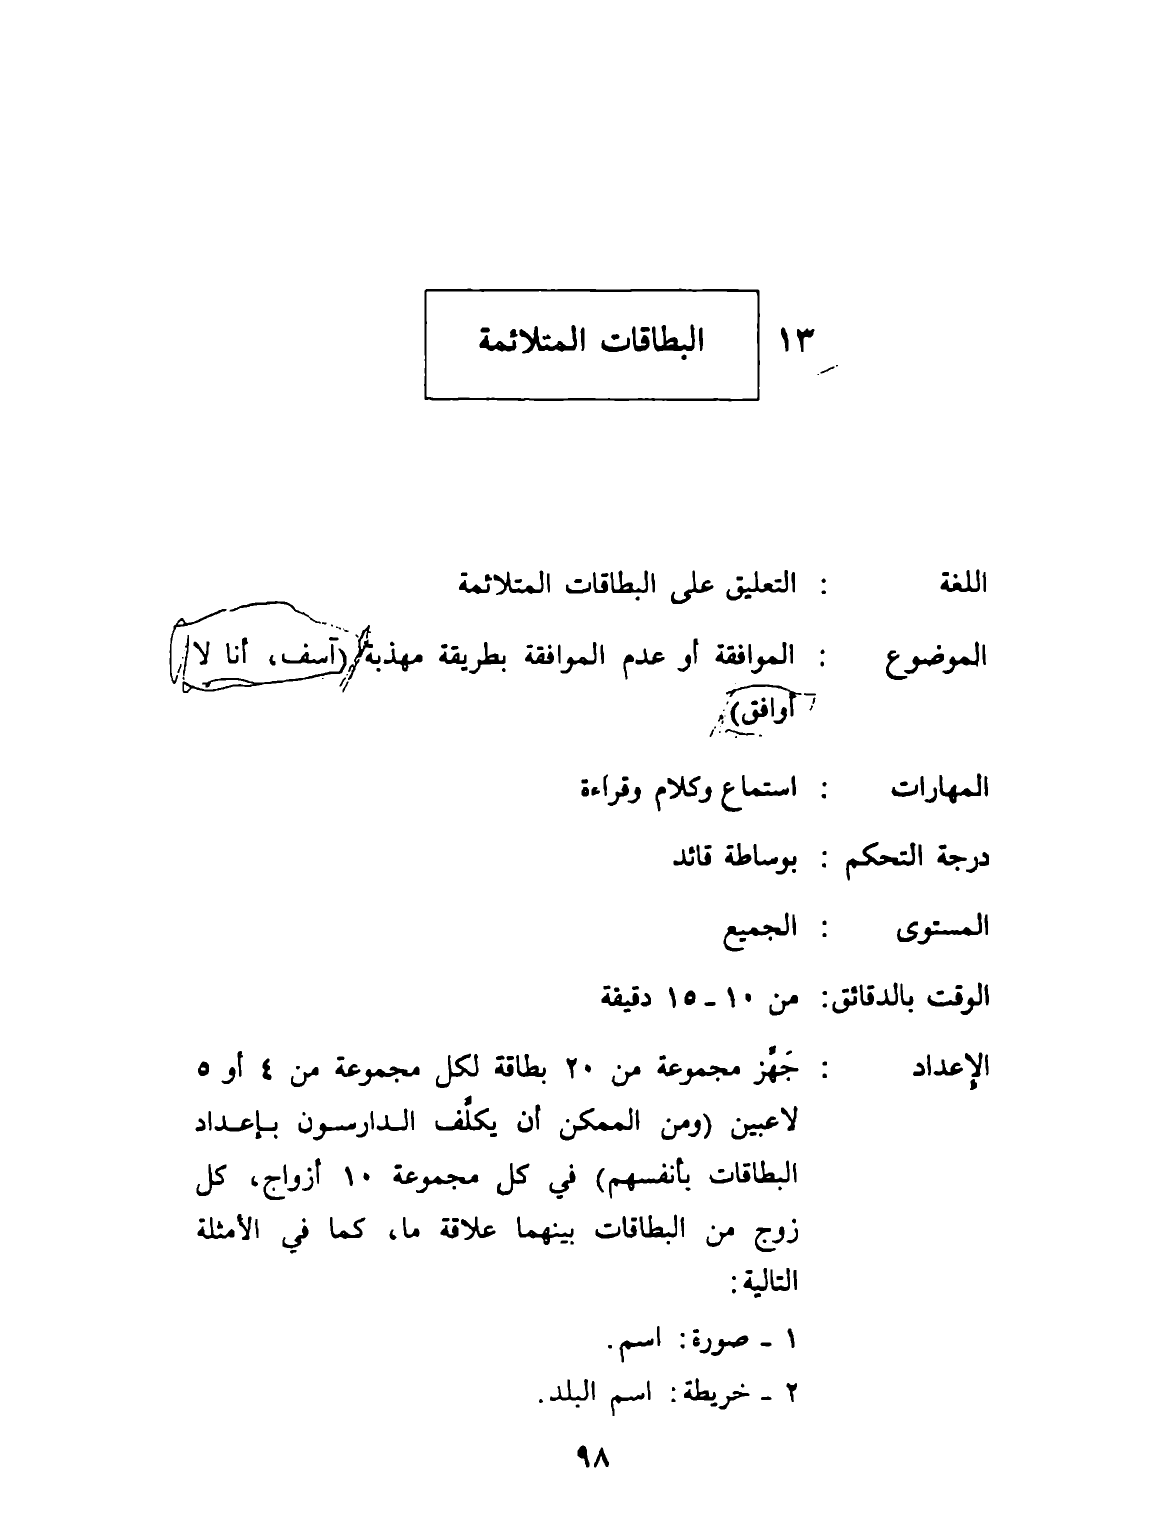 ١٣ البطاقات المتلائمة
اللغة : التعليق على البطاقات المتلائمة
الموضوع : الموافقة أو عدم الموافقة بطريقة مهذبة (آسف، أنا لا
أوافق)
المهارات : استماع وكلام وقراءة
درجة التحكم : بوساطة قائد
المستوى : الجميع
الوقت بالدقائق: من ١٠ ـ ١٥ دقيقة
الإعداد : جَهِّز مجموعة من ٢٠ بطاقة لكل مجموعة من ٤ أو ٥
لاعبين (ومن الممكن أن يكلَّف الدارسون بإعداد
البطاقات بأنفسهم) في كل مجموعة ١٠ أزواج، كل
زوج من البطاقات بينهما علاقة ما، كما في الأمثلة
التالية:
١ ـ صورة: اسم.
٢ ـ خريطة: اسم البلد.
٩٨